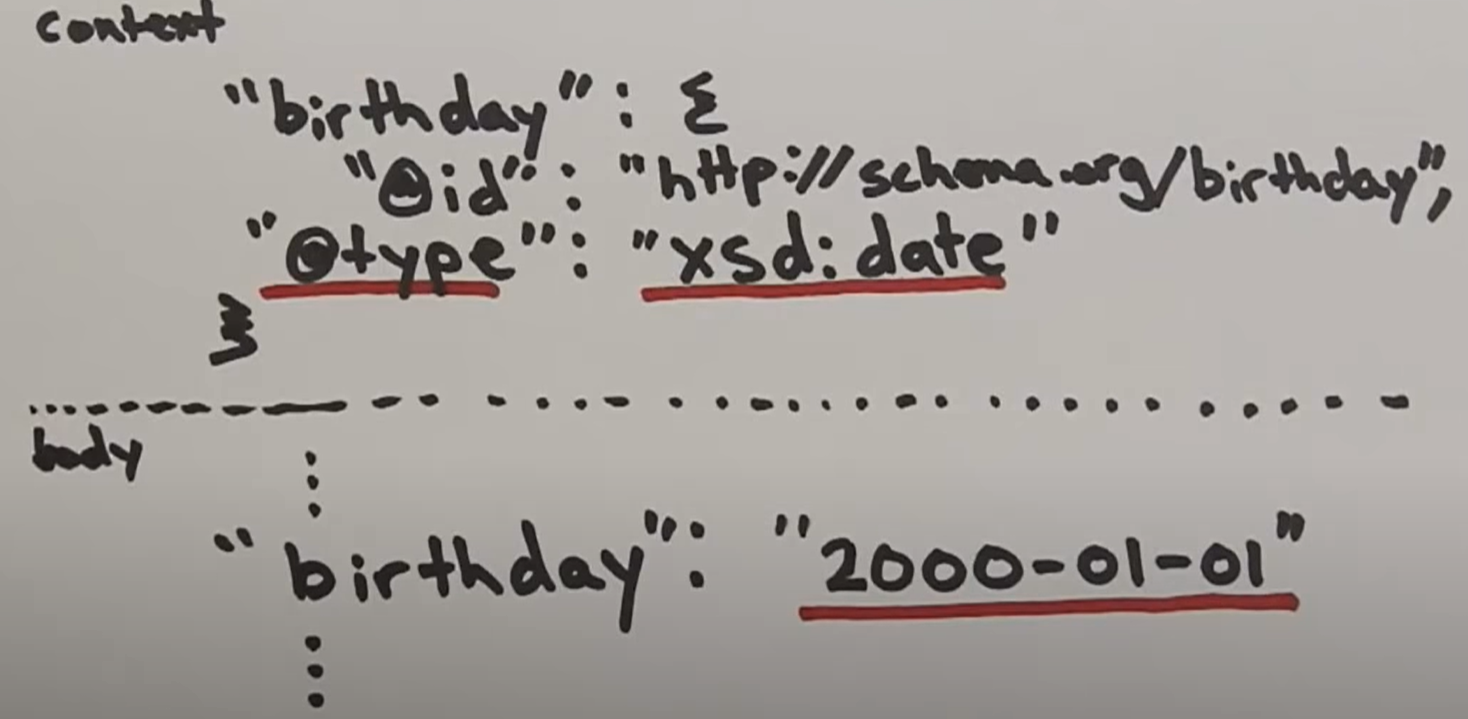 context
"birthday": {
"@id": "http://schema.org/birthday",
"@type": "xsd:date"
}
body
"birthday": "2000-01-01"